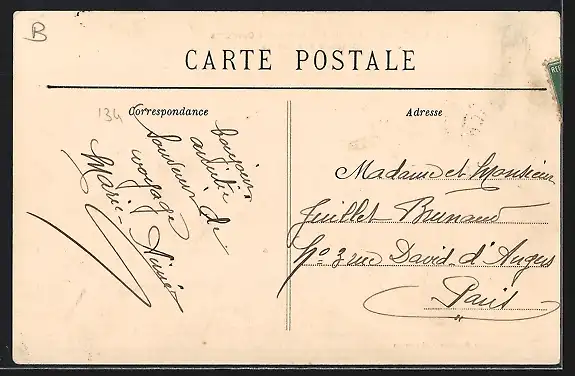 B
CARTE POSTALE
134
Correspondance
Adresse
bonjour
amitié
Souvenir de
voyage
Marie - Aimée
Madame et Monsieur
Juillet Brunaud
No 3 rue David d'Angers
Paris